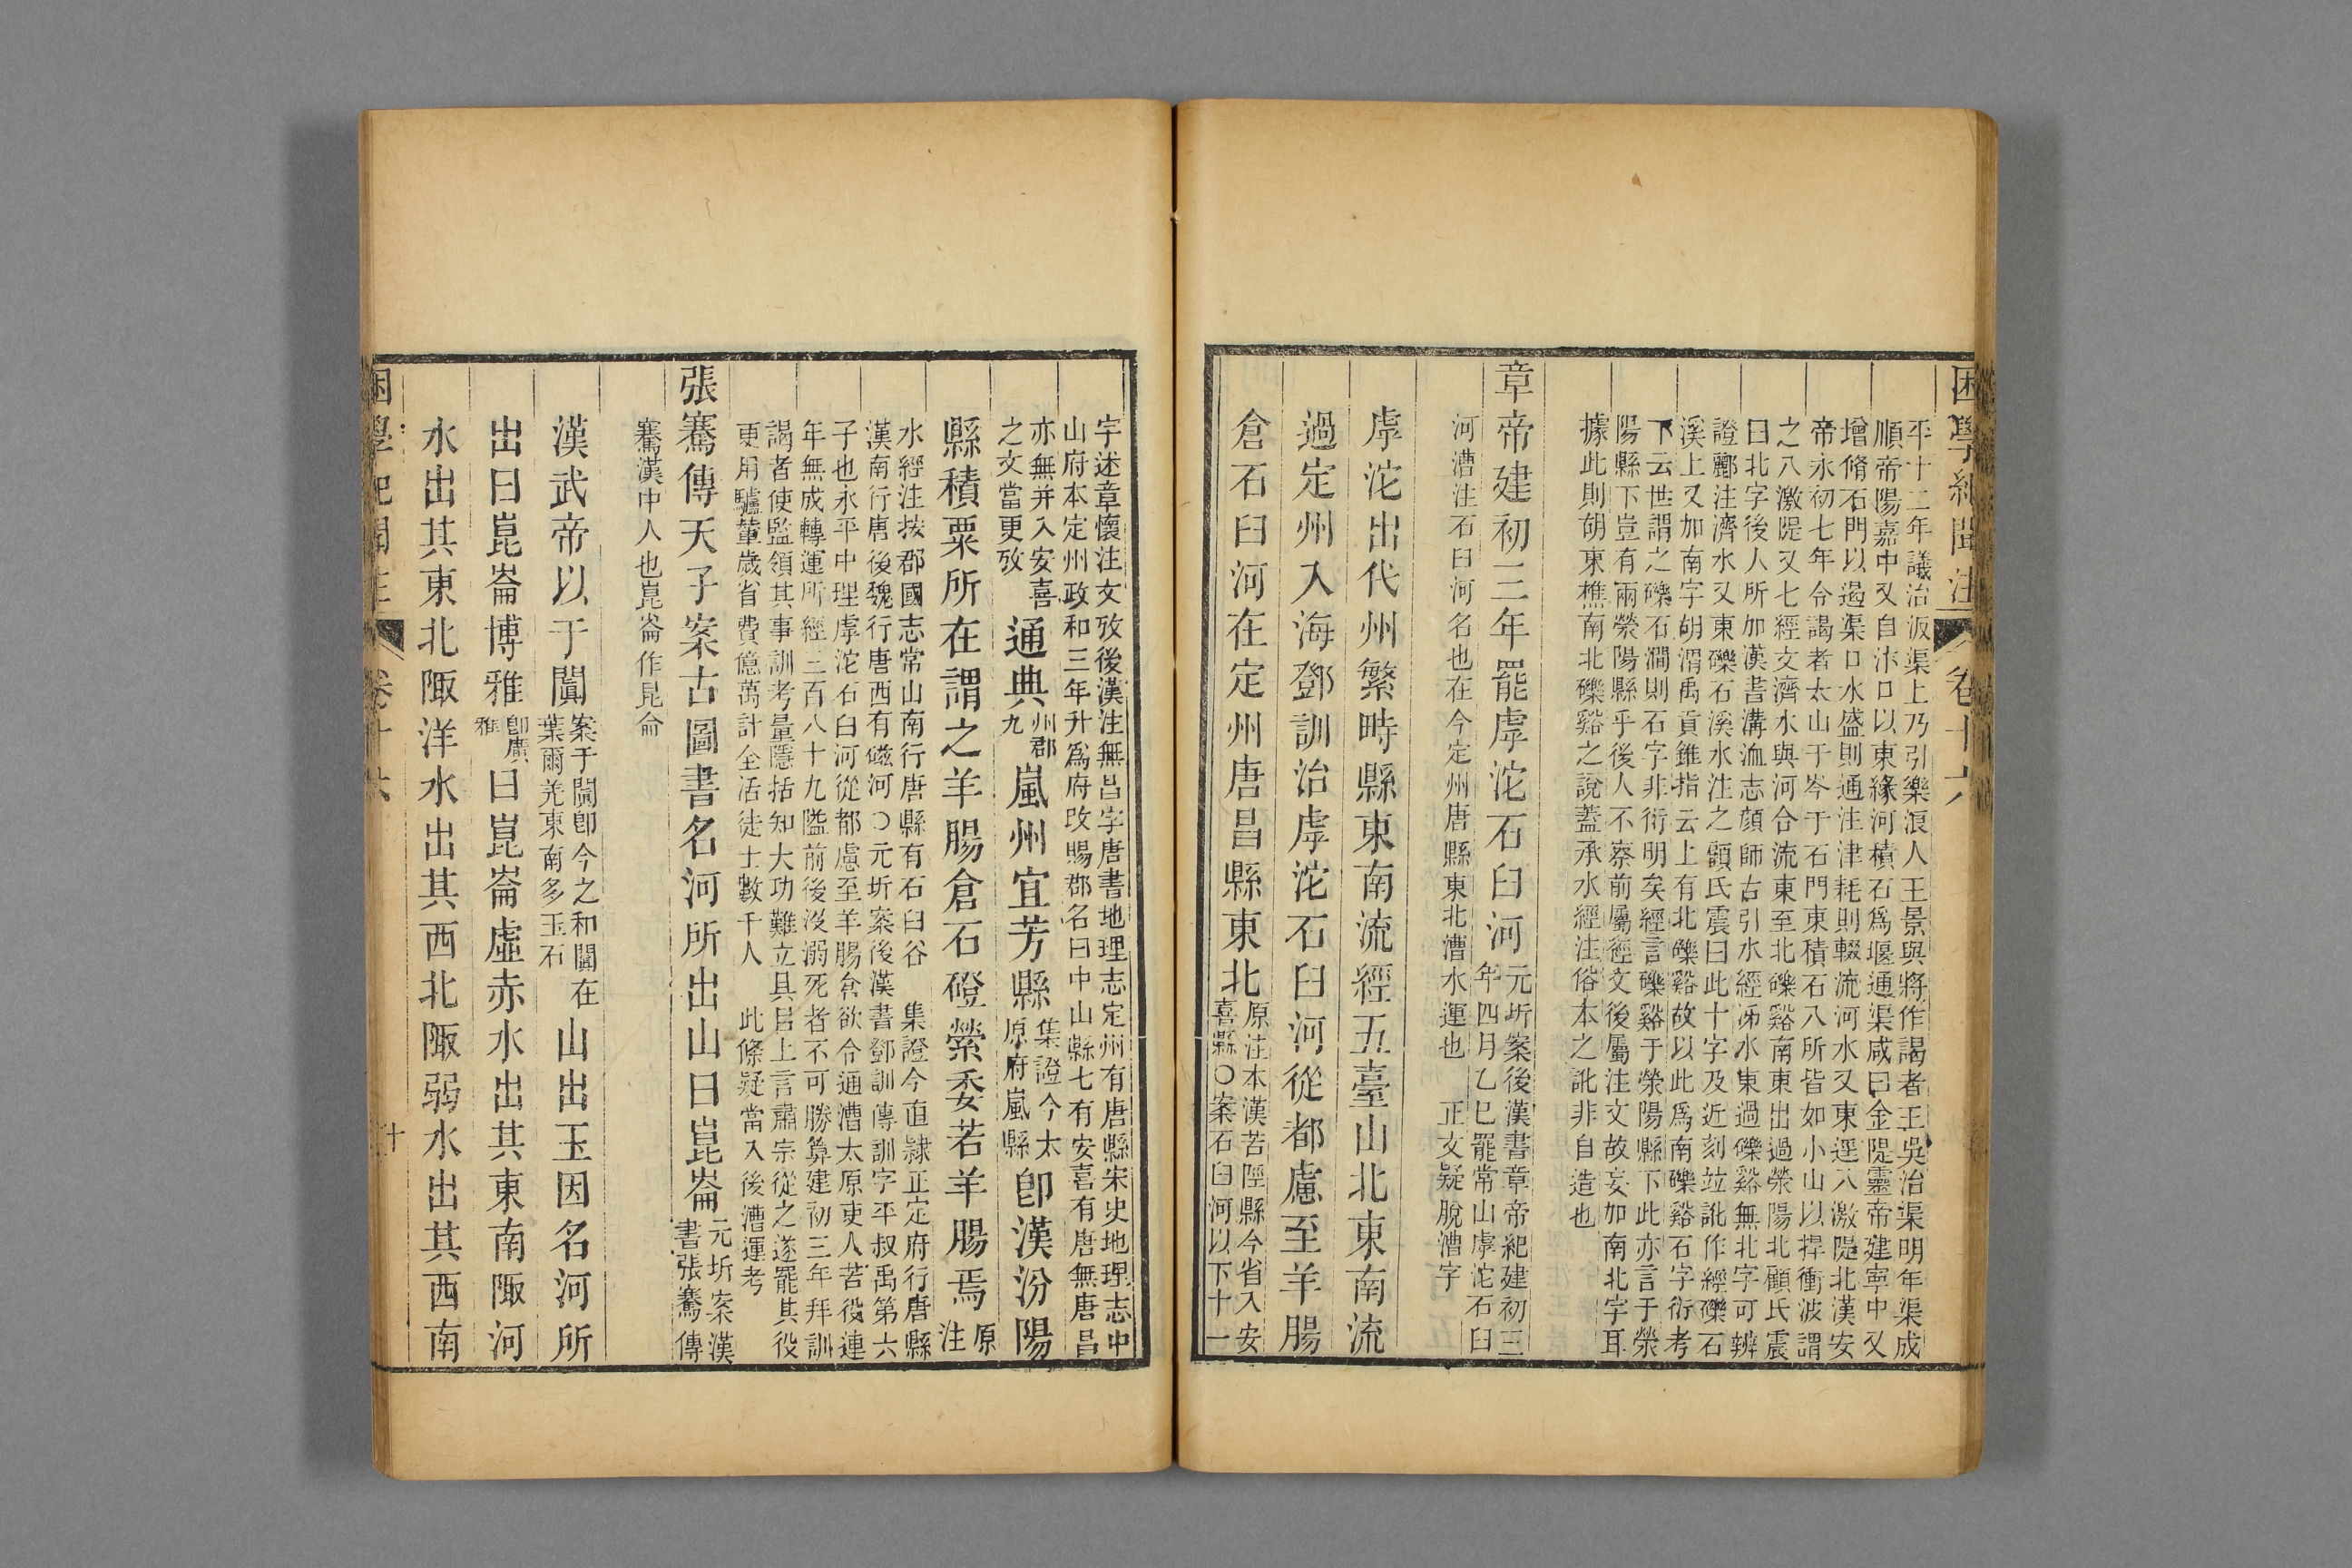 困學紀聞注 卷十六
平十二年議治汳渠上乃引樂浪人王景與將作謁者王吳治渠明年渠成
順帝陽嘉中又自汴口以東緣河積石為堰通渠咸曰金隄靈帝建寧中又
增脩石門以遏渠口水盛則通注津耗則輟流河水又東逕八激隄北漢安
帝永初七年令謁者太山于岑于石門東積石八所皆如小山以捍衝波謂
之八激隄又七經文濟水與河合流東至北礫谿南東出過滎陽北顧氏震
曰北字後人所加漢書溝洫志顏師古引水經沛水東過礫谿無北字可辨
證酈注濟水又東礫石溪水注之顧氏震曰此十字及近刻竝訛作經礫石
溪上又加南字胡渭禹貢錐指云上有北礫谿故以此爲南礫谿石字衍考
下云世謂之礫石澗則石字非衍明矣經言礫谿于滎陽縣下此亦言于滎
陽縣下豈有兩滎陽縣乎後人不察前屬經文後屬注文故妄加南北字耳
據此則胡東樵南北礫谿之說蓋承水經注俗本之訛非自造也
章帝建初三年罷虖沱石臼河元圻案後漢書章帝紀建初三
年四月乙巳罷常山虖沱石臼
河漕注石臼河名也在今定州唐縣東北漕水運也 正文疑脫漕字
虖沱出代州繁畤縣東南流經五臺山北東南流
過定州入海鄧訓治虖沱石臼河從都慮至羊腸
倉石臼河在定州唐昌縣東北原注本漢苦陘縣今省入安
喜縣○案石臼河以下十一
字述章懷注文攷後漢注無昌字唐書地理志定州有唐縣宋史地理志中
山府本定州政和三年升爲府改賜郡名曰中山縣七有安喜有唐無唐昌
亦無并入安喜
之文當更攷
通典州郡
九
嵐州宜芳縣集證今太
原府嵐縣
卽漢汾陽
縣積粟所在謂之羊腸倉石磴縈委若羊腸焉原
注
水經注按郡國志常山南行唐縣有石臼谷 集證今直隸正定府行唐縣
漢南行唐後魏行唐西有磁河○元圻案後漢書鄧訓傳訓字平叔禹第六
子也永平中理虖沱石臼河從都慮至羊腸倉欲令通漕太原吏人苦役連
年無成轉運所經三百八十九隘前後沒溺死者不可勝算建初三年拜訓
謁者使監領其事訓考量隱括知大功難立具目上言肅宗從之遂罷其役
更用驢輦歲省費億萬計全活徒士數千人 此條疑當入後漕運考
張騫傳天子案古圖書名河所出山曰崑崙元圻案漢
書張騫傳
騫漢中人也崑崙作昆侖
漢武帝以于闐案于闐卽今之和闐在
葉爾羌東南多玉石
山出玉因名河所
出曰崑崙博雅卽廣
雅
曰崑崙虛赤水出其東南陬河
水出其東北陬洋水出其西北陬弱水出其西南
困學紀聞注 卷十六 十